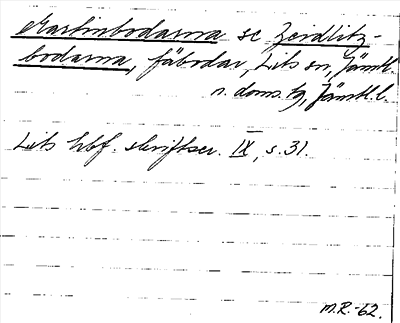 Martinbodarna se Zeidlitz-
bodarna, fäbodar, Lits sn, Jämtl.
n. doms. tg, Jämtl. l.
Lits hbf. skriftser. IX, s. 31.
M.R.-62.